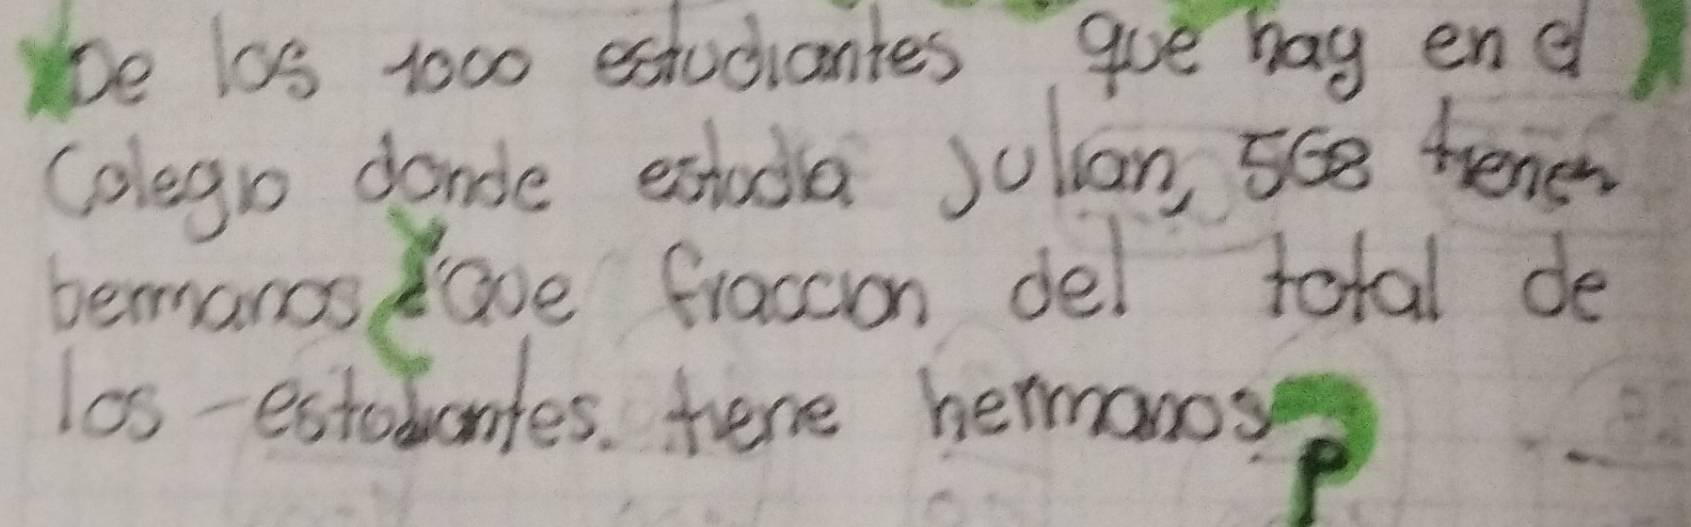 De los 1000 estudiantes que hay en el
Colegio donde estudia Julian, 568 tienen
hermanos ¿Que fraccion del total de
los estudiantes. tiene hermanos?